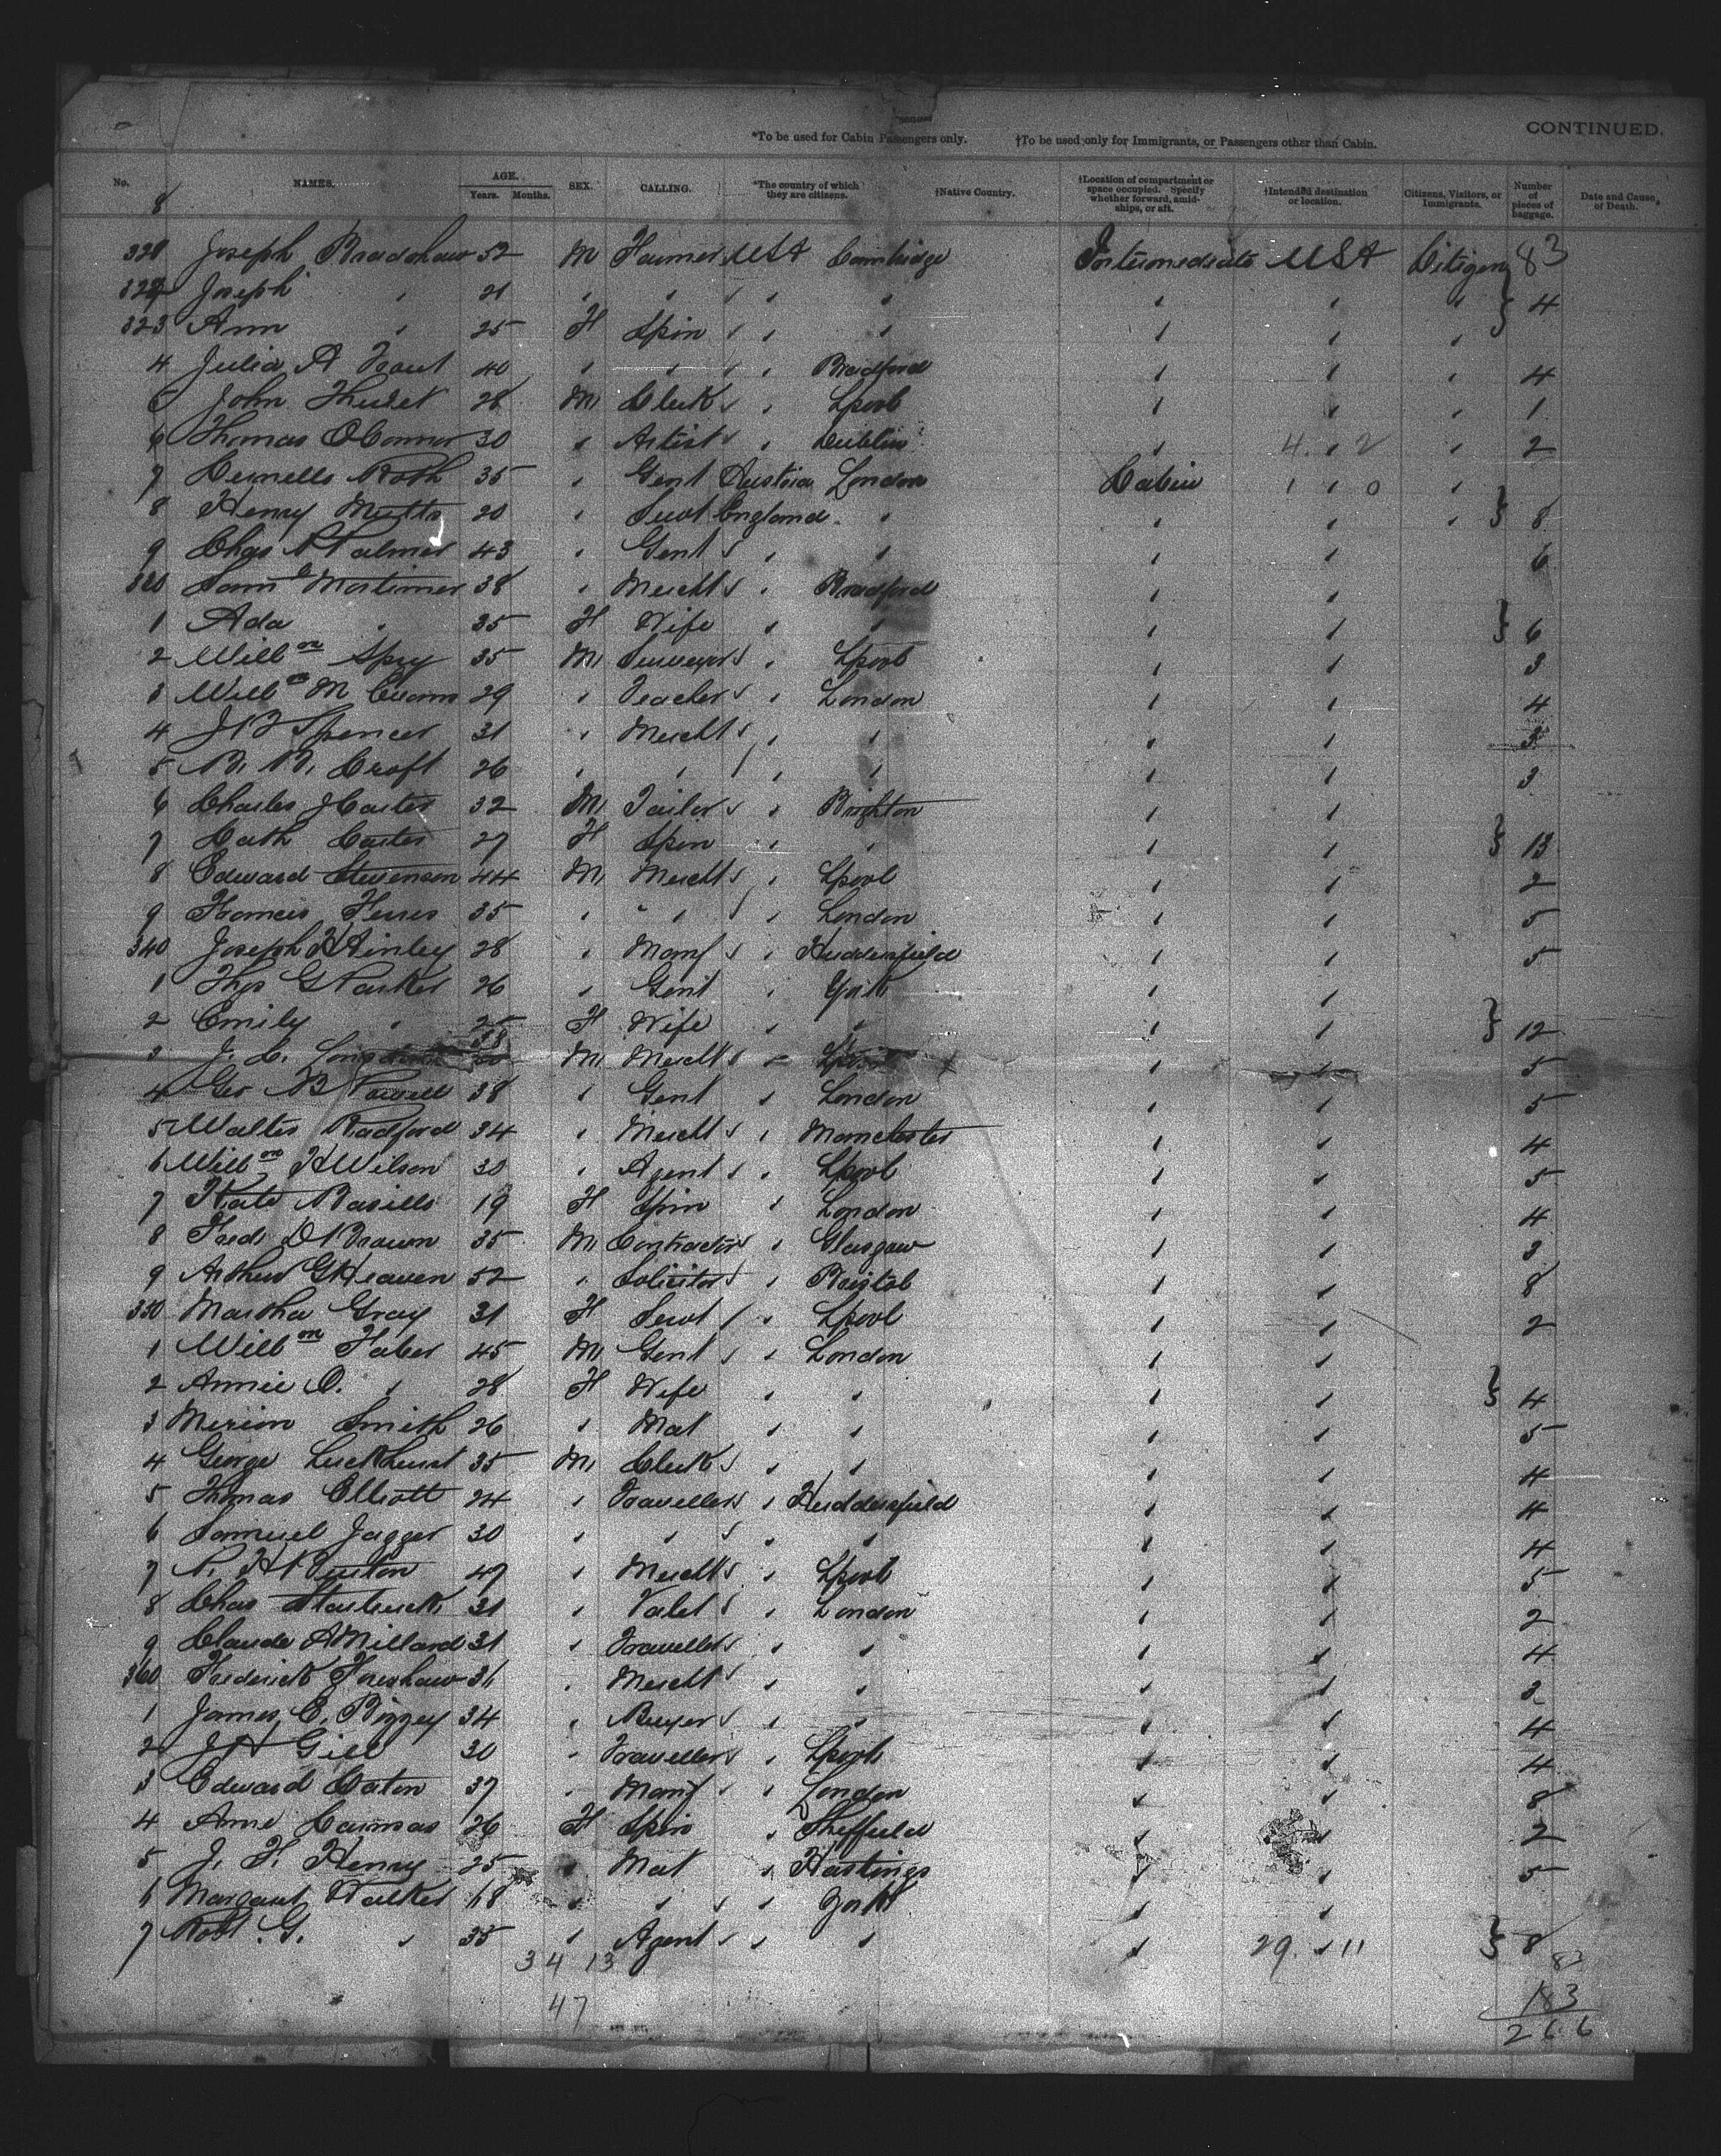 CONTINUED.
*To be used for Cabin Passengers only. †To be used only for Immigrants, or Passengers other than Cabin.
No. NAMES. AGE. Years. Months. SEX. CALLING. *The country of which they are citizens. †Native Country. †Location of compartment or space occupied. Specify whether forward, amidships, or aft. †Intended destination or location. Citizens, Visitors, or Immigrants. Number of pieces of baggage. Date and Cause of Death.
8
Joseph Bradshaw 52 M Farmer USA Cambridge Intermediate USA Citizen 83
Joseph " 21 " " " " " " " " } 4
323 Ann " 25 F Spin " " " " " "
4 Julia A 40 " " " " Bradford " " " 4
John 28 M Clerk " Lpool " " " 1
6 Thomas OConnor 30 " Artist " Dublin " 4 . 2 " 2
7 Roth 35 " Gent Austria London Cabin 1 1 0 "
8 Henry 20 " Servt England " " " " } 8
9 Chas P Palmer 43 " Gent " " " " " 6
Saml Mortimer 38 " Mercht " Bradford " "
1 Ada " 35 F Wife " " " " } 6
2 Willm Spry 35 M Surveyor " Lpool " " 3
3 Willm M Evans 29 " Teacher " London " " 4
4 J B Spencer 31 " Mercht " " " "
5 Croft 26 " " " " " " 3
6 Charles J Carter 32 M Tailor " Brighton " "
7 Cath Carter 27 F Spin " " " " } 13
8 Edward Stevenson 44 M Mercht " Lpool " " 2
9 Francis 35 " " " London " " 5
340 Joseph H Hinley 28 " Manf " Huddersfield " " 5
1 Thos G Parker 26 " Gent " York " "
2 Emily " 25 F Wife " " " " } 12
3 J. C. 38 M Mercht " Lpool " " 5
4 Geo B Powell 38 " Gent " London " " 5
5 Walter Radford 34 " Mercht " Manchester " " 4
6 Willm H Wilson 30 " Agent " Lpool " " 5
7 Kate 19 F Spin " London " " 4
8 Fredk D Brown 35 M Contractor " Glasgow " " 3
9 Arthur G Heaven 52 " Solicitor " Bristol " " 8
Martha Gray 31 F Servt " Lpool " " 2
1 Willm Faber 45 M Gent " London " "
2 Annie O. " 28 F Wife " " " " } 4
3 Smith 26 " Mat " " " " 5
4 George Luckhurst 35 M Clerk " " " " 4
5 Thomas Elliott 24 " Traveller " Huddersfield " " 4
6 Samuel Jagger 30 " " " " " " 4
7 H 47 " Mercht " Lpool " " 5
8 Chas Starbuck 31 " Valet " London " " 2
9 Claude A Millard 31 " Traveller " " " " 4
360 Frederick 31 " Mercht " " " "
1 James E. 34 " Buyer " " " " 4
2 J H Gill 30 " Traveller " Lpool " " 4
3 Edward Caton 37 " Manf " London " " 8
4 Anne 26 F Spin " Sheffield " " 2
5 J. F. Henry 25 " Mat " Hastings " " 5
6 Margaret Walker 68 " " " York " "
7 Robt. G. " 35 " Agent " " " 29 . 11 } 8
34 13 83
47 183
266